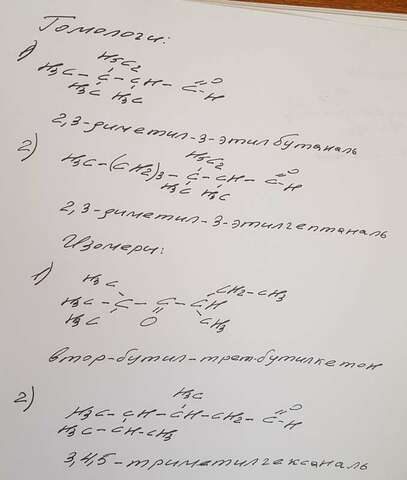 Гомологи:
1)
H5C2
H3C - C - CH - C =O
H3C H3C H
2,3-диметил-3-этилбутаналь
2)
H5C2
H3C-(CH2)3-C-CH-C=O
H3C H3C H
2,3-диметил-3-этилгептаналь
Изомеры:
1)
H3C CH2-CH3
H3C - C - C - CH
H3C O CH3
втор-бутил-трет.бутилкетон
2)
H3C
H3C-CH-CH-CH2-C=O
H3C-CH-CH3 H
3,4,5-триметилгексаналь